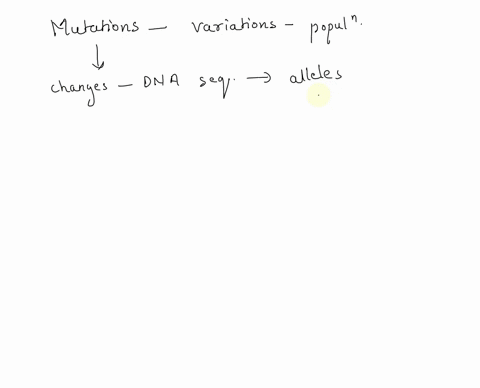 Mutations — variations – populⁿ.
↓
changes — DNA seq. → alleles